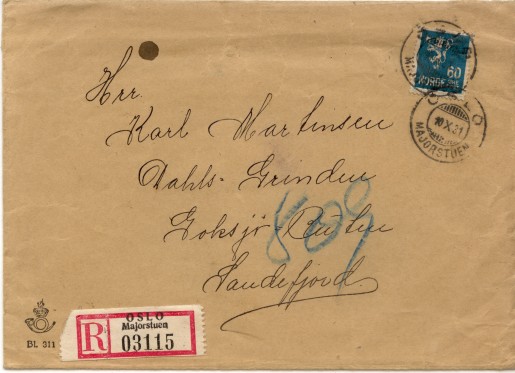 60
NORGE
OSLO
10.X.31
MAJORSTUEN
Hrr.
Karl Martinsen
Dahls-Grinden
Goksjö-Ruten
Sandefjord.
R
OSLO
Majorstuen
03115
Bl. 311